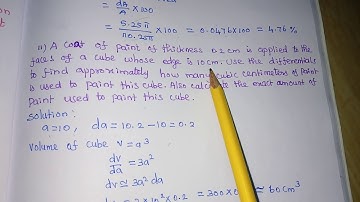 = dA/A × 100
= 5.25π/110.25π × 100 = 0.0476 × 100 = 4.76 %
11) A coat of paint of thickness 0.2 cm is applied to the
faces of a cube whose edge is 10 cm. Use the differentials
to find approximately how many cubic centimeters of paint
is used to paint this cube. Also calculate the exact amount of
Paint used to paint this cube.
Solution:
a = 10, da = 10.2 - 10 = 0.2
Volume of cube V = a³
dv/da = 3a²
dv ≃ 3a² da
× 10² × 0.2 = 300 × 0. ≃ 60 cm³